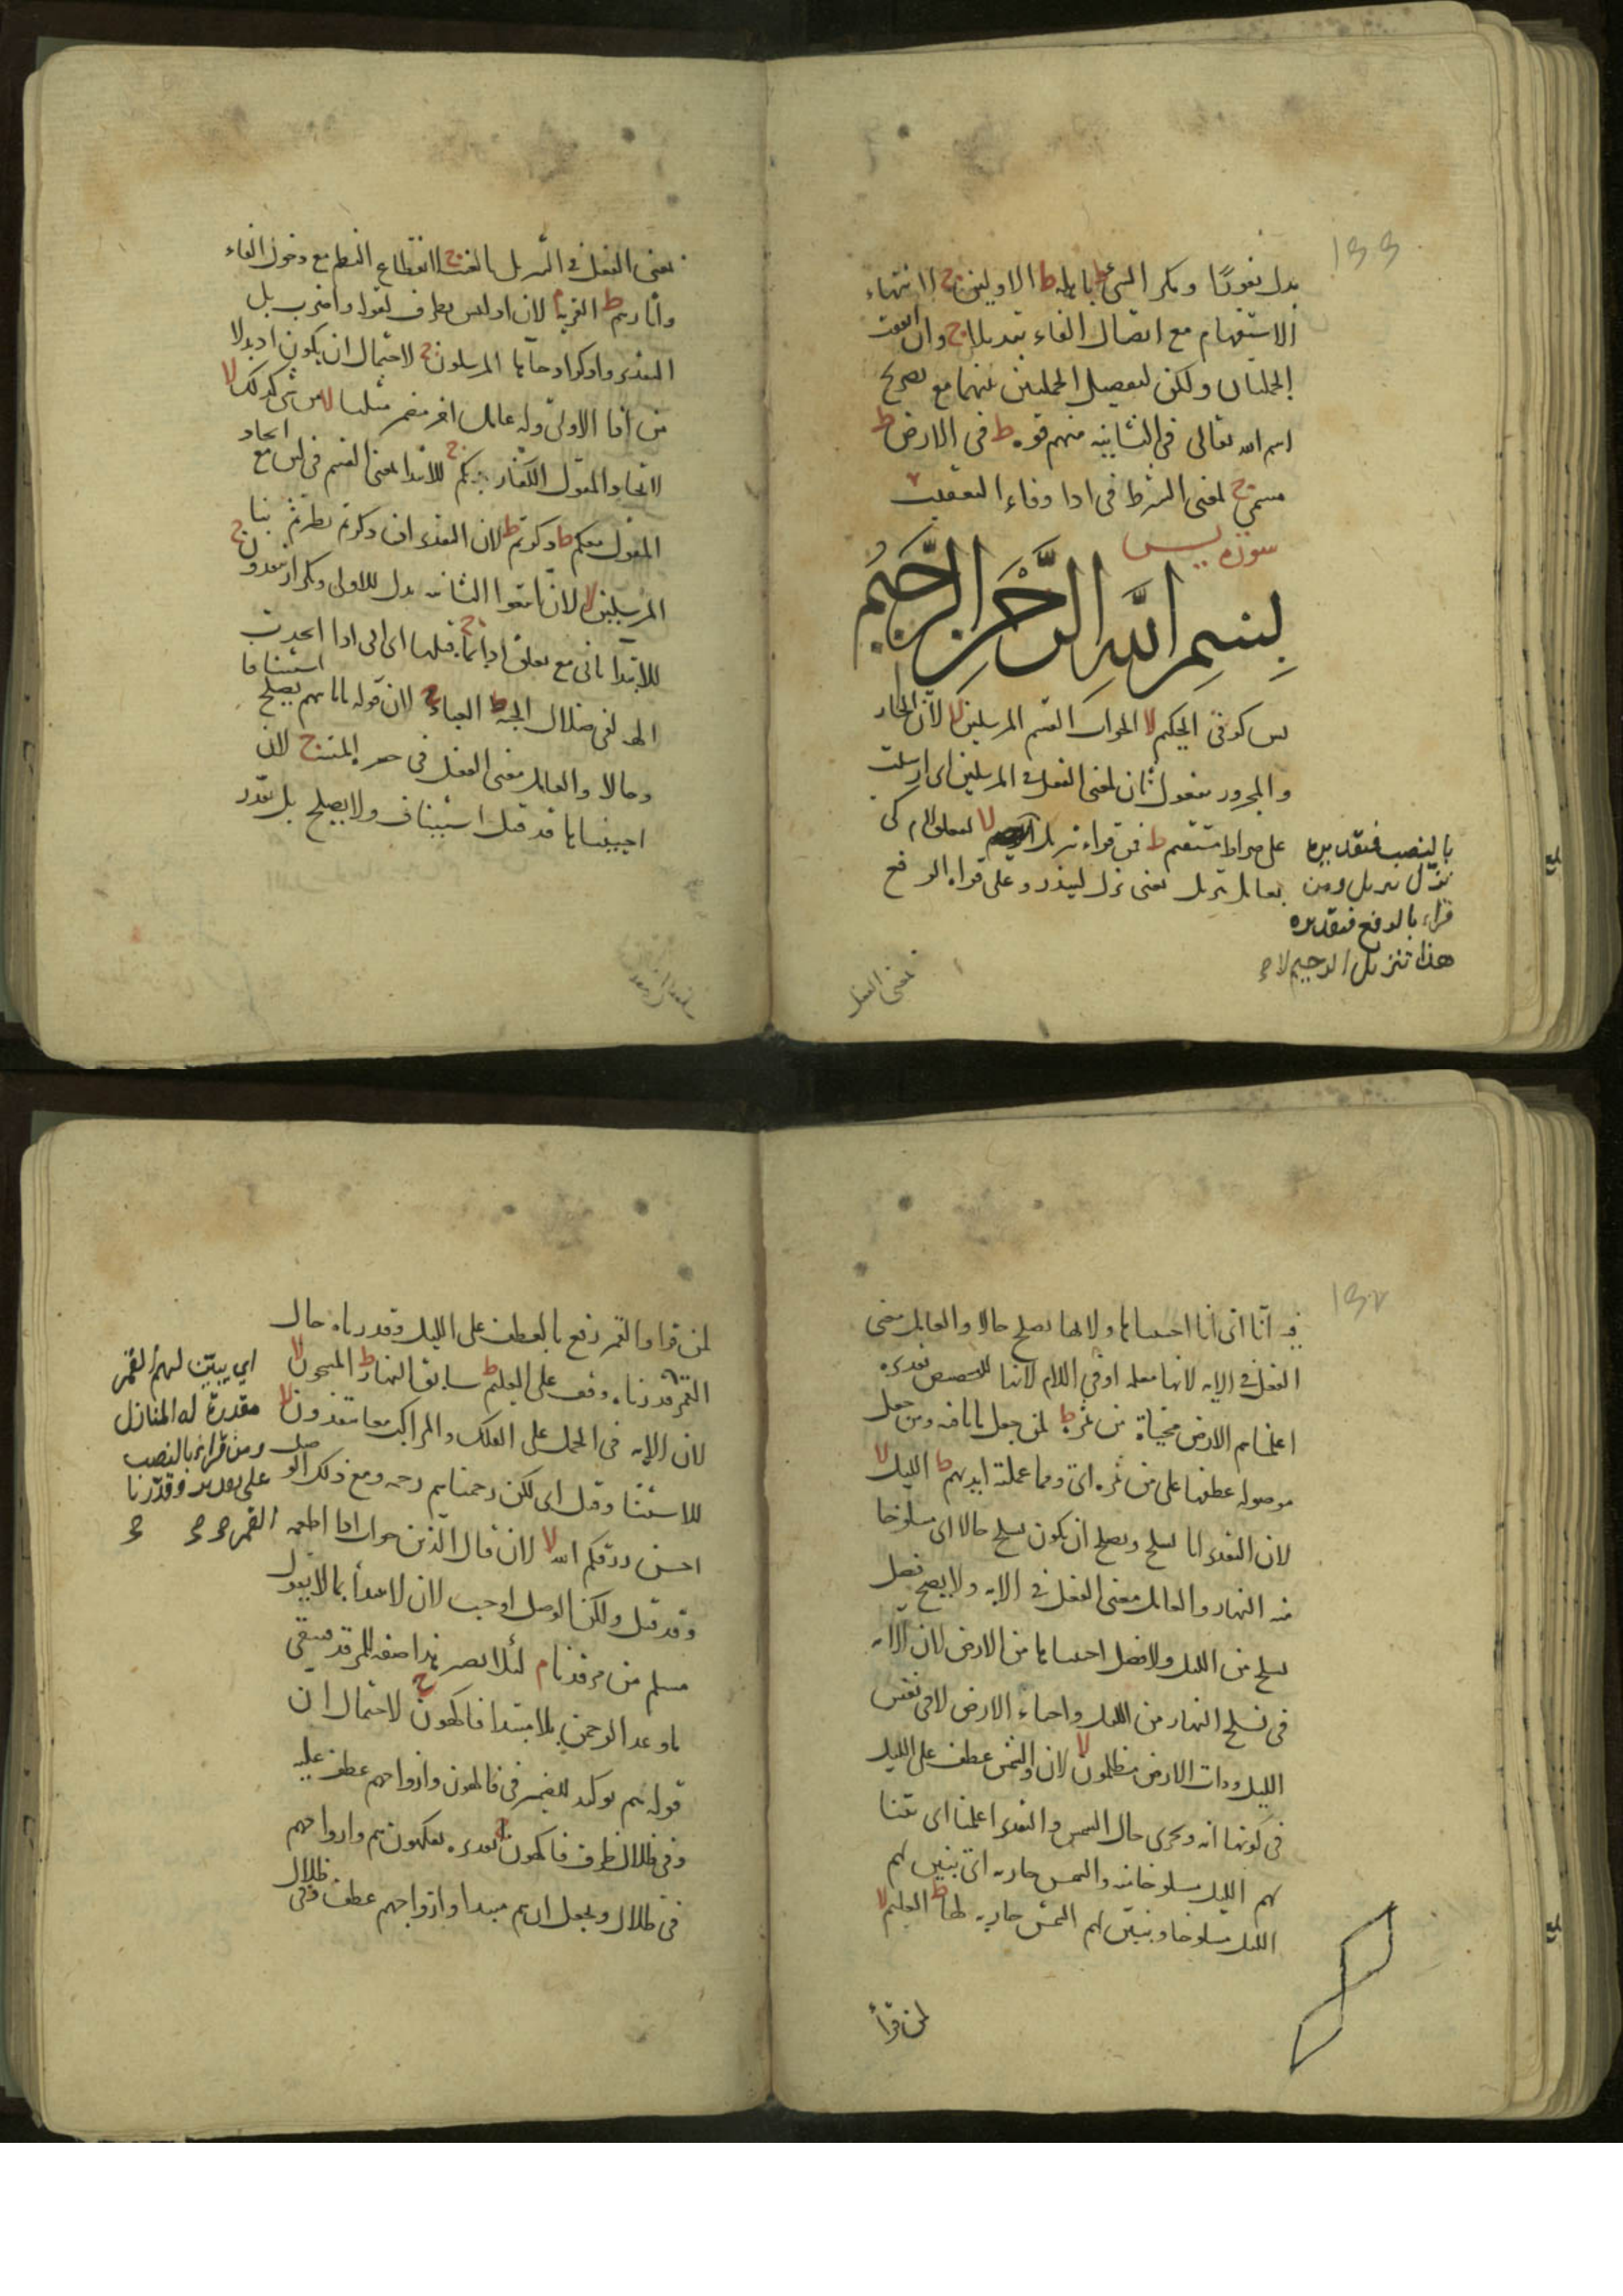 بدل نفورًا ومكر السئ ط باهله ط الاولين ج لانتهاء
الاستفهام مع اتصال الفاء تبديلا ج وان اتفقت
الجملتان ولكن لتفصيل الجملتين بينهما مع تصريح
اسم الله تعالى فى الثانيه منهم قوه ط فى الارض ط
مسمى ج لمعنى الشرط فى اذا وفاء التعقيب
سورة يس
بسم الله الرحمن الرحيم
يس كوفى الحكيم لا لجواب القسم المرسلين لا لان الجار
والمجرور مفعول ثان لمعنى الفعل فى المرسلين اى ارسلت
على صراط مستقيم ط فمن قراء تنزيل لا لتعلق لام كى
بالنصب فتقديره
نزل تنزيل ومن
قراء بالرفع فتقديره
هذا تنزيل الرحيم لا
بعامل تنزيل يعنى نزل لينذر وعلى قراة الرفع
بمعنى الفعل
معنى الفعل فى التنزيل بالفتح لانقطاع النظم مع دخول الفاء
واثارهم ط القرية م لان اذ ليس بظرف لقوله واضرب بل
التقدير واذكر اذ جاءها المرسلون ج لاحتمال ان يكون اذ بدلا
من اذ الاولى وله عامل اخر مضمر مثلنا لا من شى كذلك لا
لاتحاد المقول للكفار بكم ج للابتدا بمعنى القسم فى لئن مع اتحاد
المقول معكم ط ذكرتم ط لان التقدير ائن ذكرتم تطيرتم بنا
المرسلين لا لان اتبعوا الثانية بدل للاولى وتكرار مهتدون ج
للابتدا بانى مع تعلق اذا بما قبلها اى انى اذا اتخذت
الهة لفى ضلال الجنة ط العباد ج لان قوله ما ياتيهم يصلح استينافا
وحالا والعامل معنى الفعل فى حسرة الميتة ج لان
احييناها قد قيل استيناف ولا يصلح بل تقدر
فيه انا اى انا احييناها ولانها تصلح حالا والعامل معنى
الفعل فى الاية لانها معلمه او فى اللام لانها للتخصيص تقديره
اعلمناهم الارض محياة من ثمره لا لمن جعل ما نافيه ومن جعل
موصوله عطفها على من ثمره اى ومما عملته ايديهم ط الليل لا
لان التقدير انا نسلخ ويصلح ان يكون نسلخ حالا اى مسلوخا
منه النهار والعامل معنى الفعل فى الاية ولا يصح فصل
نسلخ من الليل ولا فصل احييناها من الارض لان الاية
فى نسلخ النهار من الليل واحياء الارض لا فى نفس
الليل وذات الارض مظلمون لا لان والشمس عطف على الليل
فى كونها اية وتجرى حال الشمس والتقدير اعلمنا اى بينا
لهم الليل مسلوخا منه والشمس جارية اى نبين لهم
الليل مسلوخا ونبين لهم الشمس جارية لها ط العليم لا
لمن قرأ
لمن قرا والقمر رفع بالعطف على الليل وقدرناه حال
القمر قدرناه وقف على العليم ط سابق النهار ط المشحون لا
لان الاية فى الحمل على الفلك والمراكب معا ينقذون لا
للاستثنا وقيل اى لكن رحمناهم رحمة ومع ذلك الوصل
احسن رزقكم الله لا لان قال الذين جواب اذا انطعمه
وقد قيل ولكن الوصل اوجب لان لا يبدأ بما لا يقول
مسلم من مرقدنا م لئلا يصير هذا صفة للمرقد فيبقى
ما وعد الرحمن بلا مبتدا فاكهون ج لاحتمال ان
قوله هم توكيد للضمير فى فاكهون وازواجهم عطف عليه
وفى ظلال ظرف فاكهون تقديره يتفكهون هم وازواجهم
فى ظلال ويجعل ان هم مبتدا وازواجهم عطف وفى ظلال
اي يبيّن لهم القمر
مقدرة له المنازل
ومن قراء بالنصب
على تقدير وقدرنا
القمر